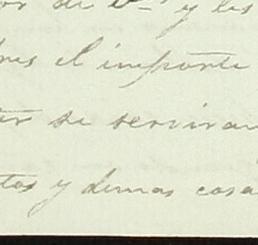 or de V.ᵐ y les
res el importe
se serviran
tas y demas casa